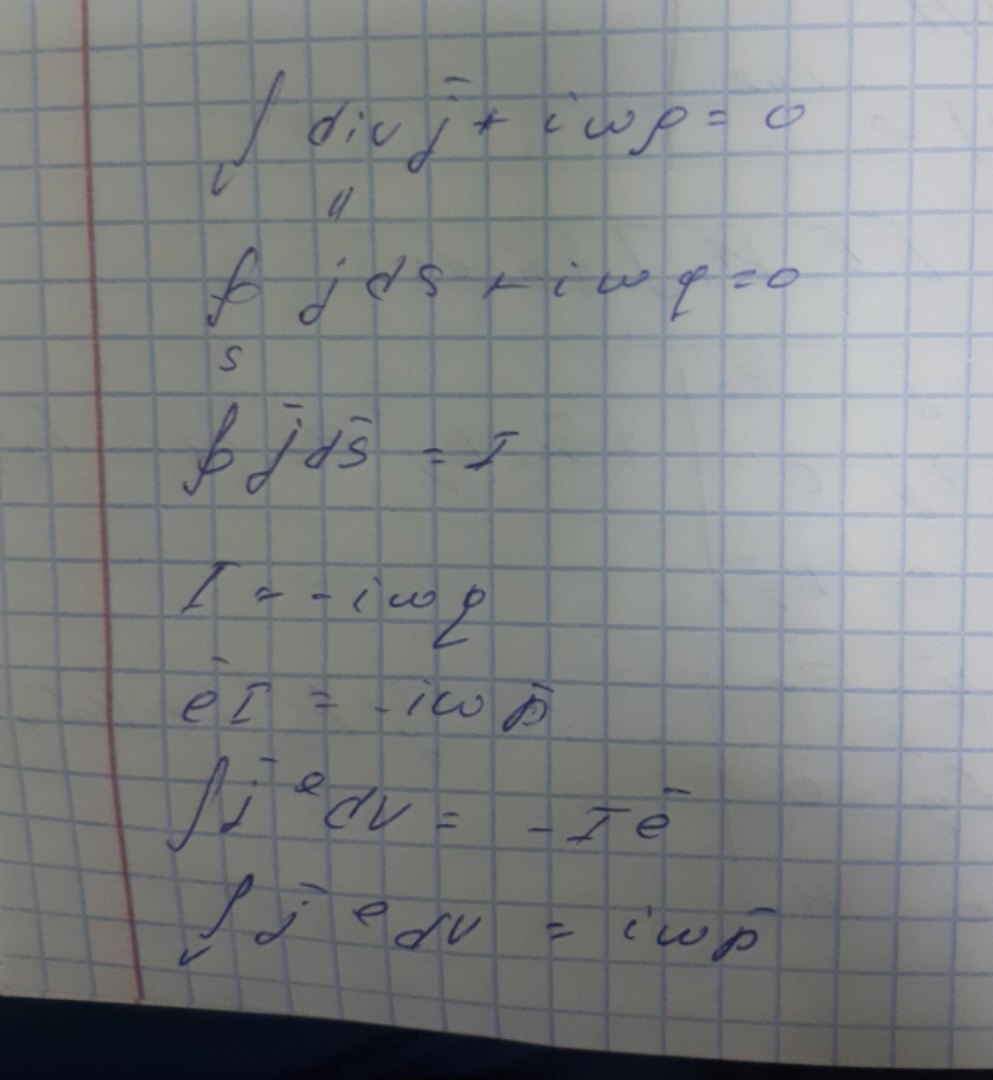 ∫ div j̄ + iωρ = 0
V
"
∮ j ds + iωq = 0
S
∮ j̄ ds̄ = I
I = -iωq
ēI = -iωp̄
∫ j̄ᵉ dV = -Iē
∫ j̄ᵉ dV = iωp̄
V